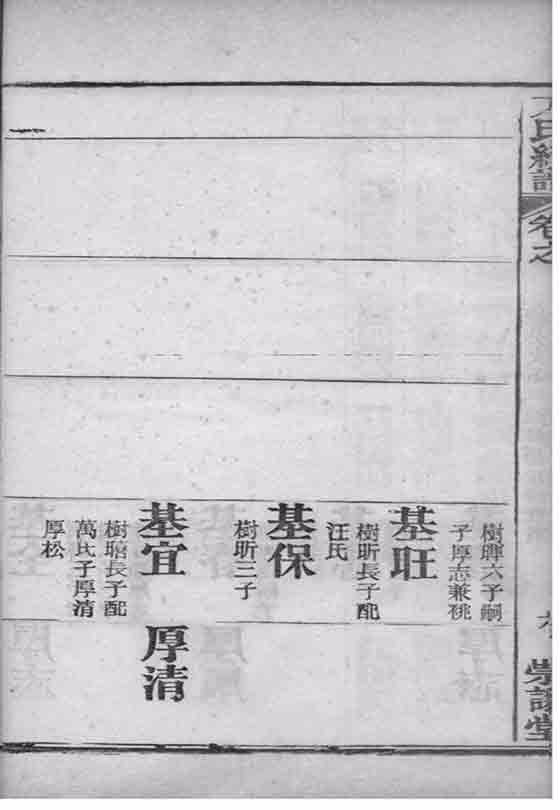 氏續譜
卷之
崇讓堂
樹暉六子嗣
子厚志兼祧
基旺
樹昕長子配
汪氏
基保
樹昕三子
基宜
樹瞻長子配
萬氏子厚清
厚松
厚清